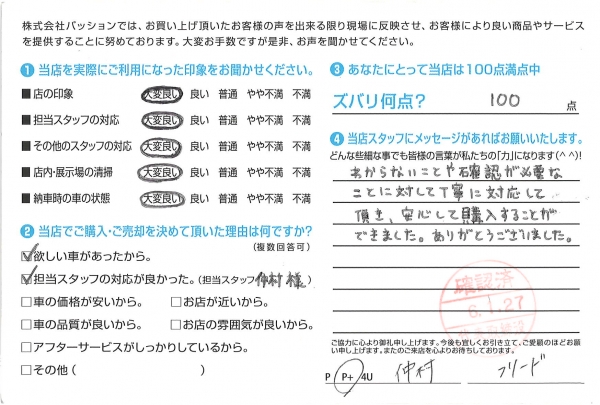 株式会社パッションでは、お買い上げ頂いたお客様の声を出来る限り現場に反映させ、お客様により良い商品やサービス
を提供することに努めております。大変お手数ですが是非、お声を聞かせてください。
① 当店を実際にご利用になった印象をお聞かせください。
■ 店の印象 大変良い 良い 普通 やや不満 不満
■ 担当スタッフの対応 大変良い 良い 普通 やや不満 不満
■ その他のスタッフの対応 大変良い 良い 普通 やや不満 不満
■ 店内・展示場の清掃 大変良い 良い 普通 やや不満 不満
■ 納車時の車の状態 大変良い 良い 普通 やや不満 不満
② 当店でご購入・ご売却を決めて頂いた理由は何ですか?
(複数回答可)
☑欲しい車があったから。
☑担当スタッフの対応が良かった。(担当スタッフ 仲村 様)
□車の価格が安いから。 □お店が近いから。
□車の品質が良いから。 □お店の雰囲気が良いから。
□アフターサービスがしっかりしているから。
□その他( )
③ あなたにとって当店は100点満点中
ズバリ何点? 100 点
④ 当店スタッフにメッセージがあればお願いいたします。
どんな些細な事でも皆様の言葉が私たちの「力」になります(^^)!
わからないことや確認が必要な
ことに対して丁寧に対応して
頂き、安心して購入することが
できました。ありがとうございました。
確認済
6.1.27
ご協力に心より御礼申し上げます。今後も宜しくお引き立て、ご愛顧のほどお願
い申し上げます。またのご来店を心よりお待ちしております。
P P+ 4U 仲村 フリード